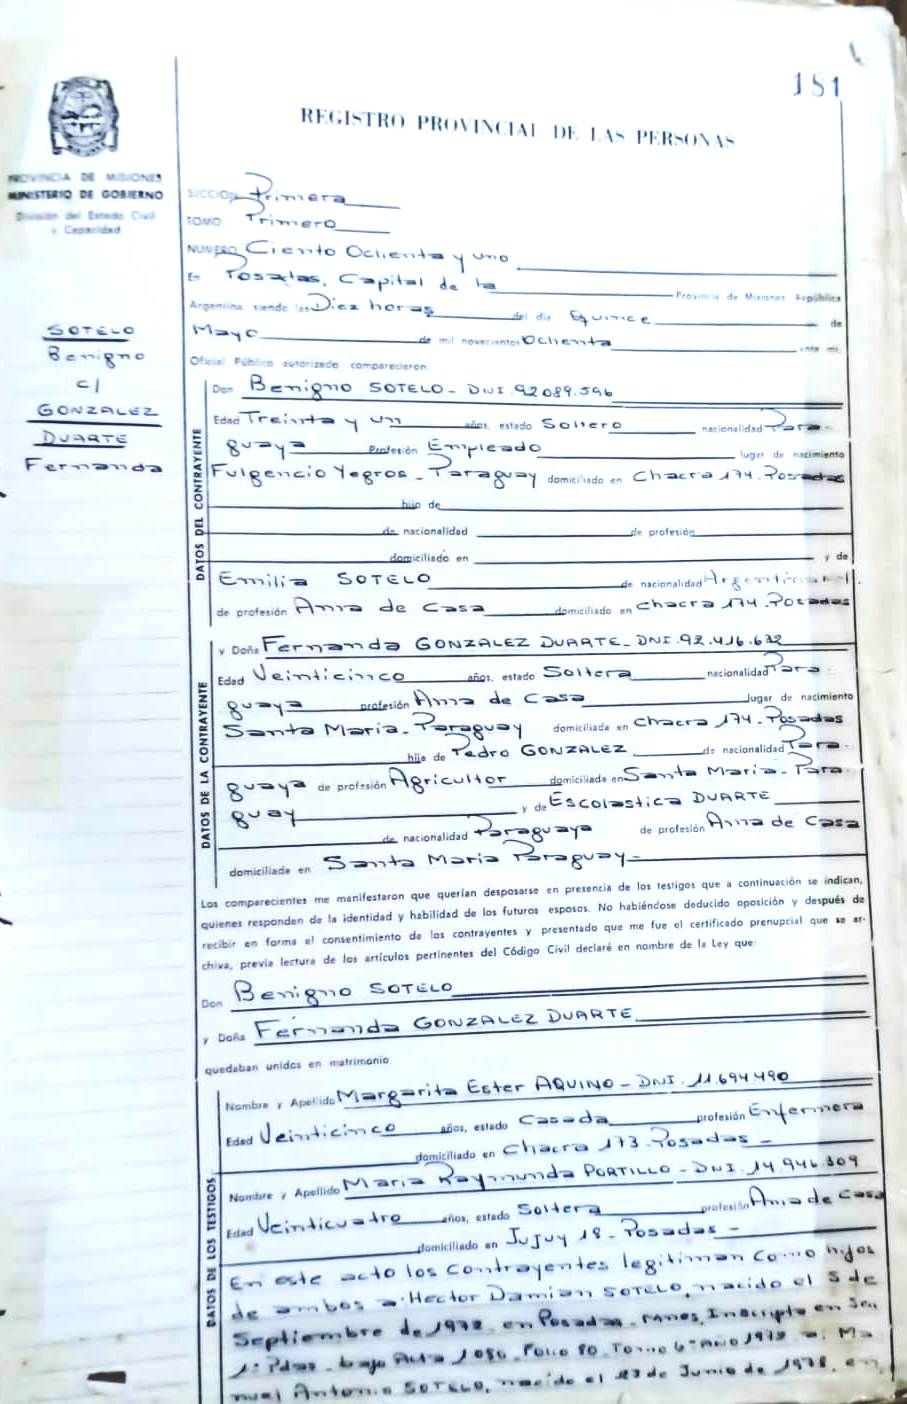 181
REGISTRO PROVINCIAL DE LAS PERSONAS
PROVINCIA DE MISIONES
MINISTERIO DE GOBIERNO
División del Estado Civil
y Capacidad
SOTELO
Benigno
c/
GONZALEZ
DUARTE
Fernanda
SECCION Primera
TOMO Primero
NUMERO Ciento Ochenta y uno
En Posadas, Capital de la Provincia de Misiones República
Argentina, siendo las Diez horas del día Quince de
Mayo de mil novecientos Ochenta ante mi,
Oficial Público autorizado comparecieron
DATOS DEL CONTRAYENTE
Don Benigno SOTELO - DNI. 92.089.596
Edad Treinta y un años, estado Soltero nacionalidad Para-
guaya Profesión Empleado lugar de nacimiento
Fulgencio Yegros - Paraguay domiciliado en Chacra 174 - Posadas
hijo de
de nacionalidad de profesión
domiciliado en y de
Emilia SOTELO de nacionalidad
de profesión Ama de Casa domiciliado en Chacra 174 - Posadas
DATOS DE LA CONTRAYENTE
y Doña Fernanda GONZALEZ DUARTE - DNI. 92.416.632
Edad Veinticinco años, estado Soltera nacionalidad Para-
guaya profesión Ama de Casa lugar de nacimiento
Santa María - Paraguay domiciliada en Chacra 174 - Posadas
hija de Pedro GONZALEZ de nacionalidad Para-
guaya de profesión Agricultor domiciliada en Santa María - Para
guay y de Escolastica DUARTE
de nacionalidad Paraguaya de profesión Ama de Casa
domiciliada en Santa María Paraguay -
Los comparecientes me manifestaron que querían desposarse en presencia de los testigos que a continuación se indican,
quienes responden de la identidad y habilidad de los futuros esposos. No habiéndose deducido oposición y después de
recibir en forma el consentimiento de los contrayentes y presentado que me fue el certificado prenupcial que se ar-
chiva, previa lectura de los artículos pertinentes del Código Civil declaré en nombre de la Ley que:
Don Benigno SOTELO
y Doña Fernanda GONZALEZ DUARTE
quedaban unidos en matrimonio
DATOS DE LOS TESTIGOS
Nombre y Apellido Margarita Ester AQUINO - DNI. 11.694.490
Edad Veinticinco años, estado Casada profesión Enfermera
domiciliado en Chacra 173 - Posadas -
Nombre y Apellido Maria Raymunda PORTILLO - DNI. 14.946.309
Edad Veinticuatro años, estado Soltera profesión Ama de Casa
domiciliado en Jujuy 18 - Posadas -
En este acto los contrayentes legitiman como hijos
de ambos a: Hector Damian SOTELO, nacido el 5 de
Septiembre de 1972, en Posadas - Mnes, Inscripto en Sec
1ª Pdas - bajo Acta 1080 - Folio 80 - Tomo 6º Año 1972 a: Ma
nuel Antonio SOTELO, nacido el 23 de Junio de 1978, en